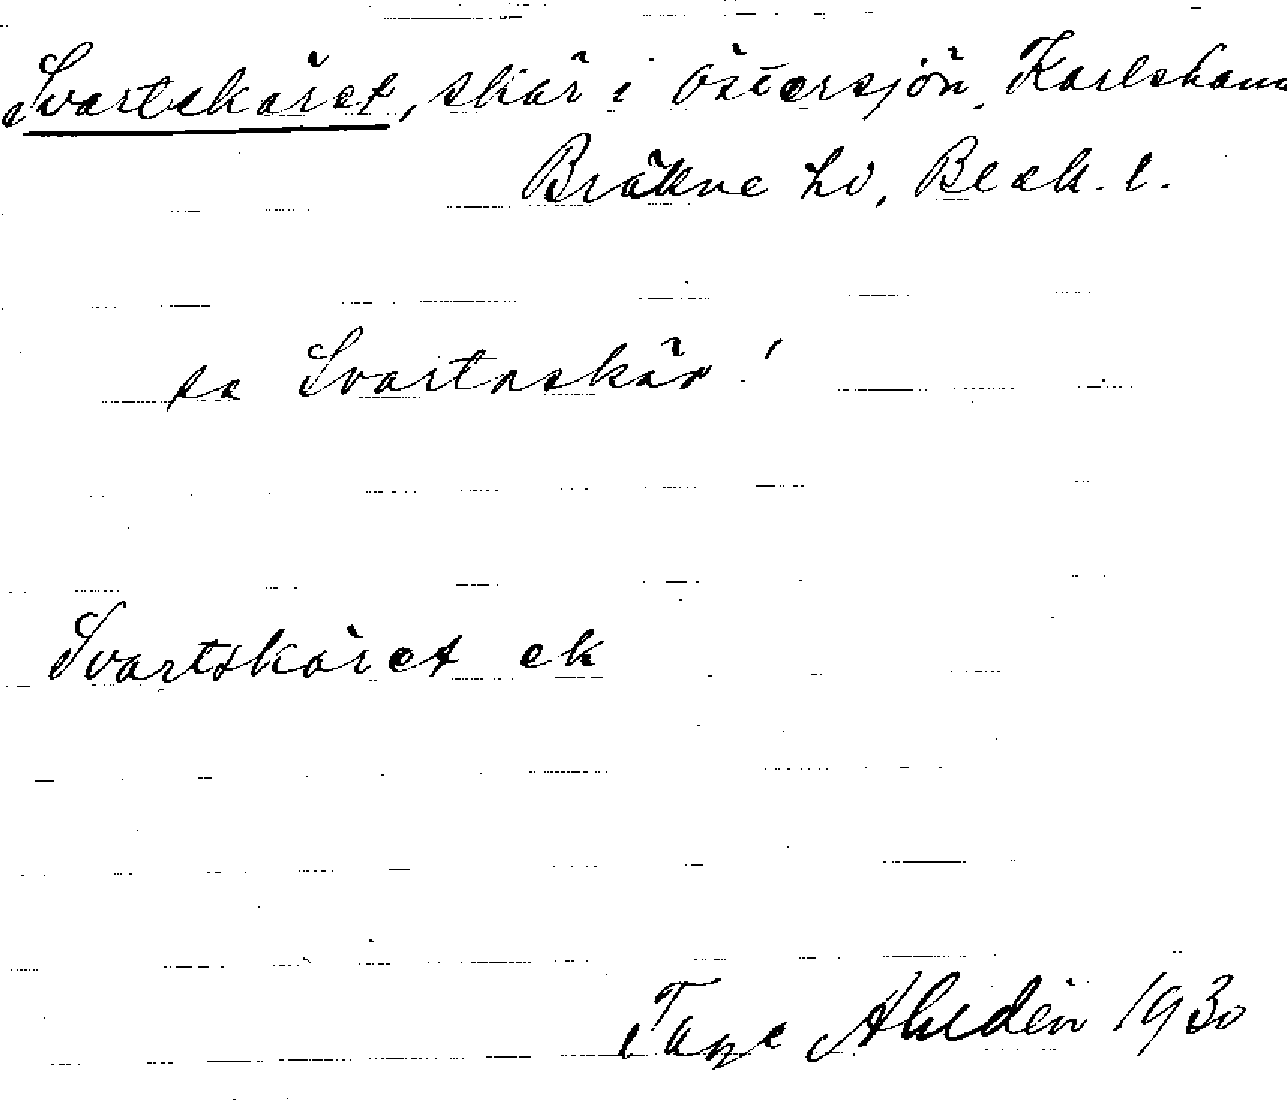 Svartskäret, skär i Östersjön, Karlshamn
Bräkne hd, Blek. l.
se Svartnskär!
Svartskäret ek
Tage Ahldén 1930